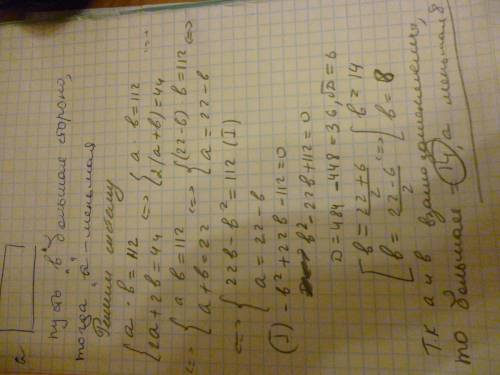 a
пусть "в" большая сторона,
тогда "а" - меньшая
Решим систему
{ a · b = 112 <=> { a · b = 112 <=>
{ 2a + 2b = 44 { 2(a+b) = 44
<=> { a · b = 112 <=> { (22-b) b = 112 <=>
{ a + b = 22 { a = 22 - b
<=> { 22b - b² = 112 (I)
{ a = 22 - b
(I) -b² + 22b - 112 = 0
b² - 22b + 112 = 0
D = 484 - 448 = 36, √D = 6
[ b = (22+6)/2 <=> [ b = 14
[ b = (22-6)/2 [ b = 8
Т.к а и в взаимозаменяемы,
то большая - 14, а меньшая 8